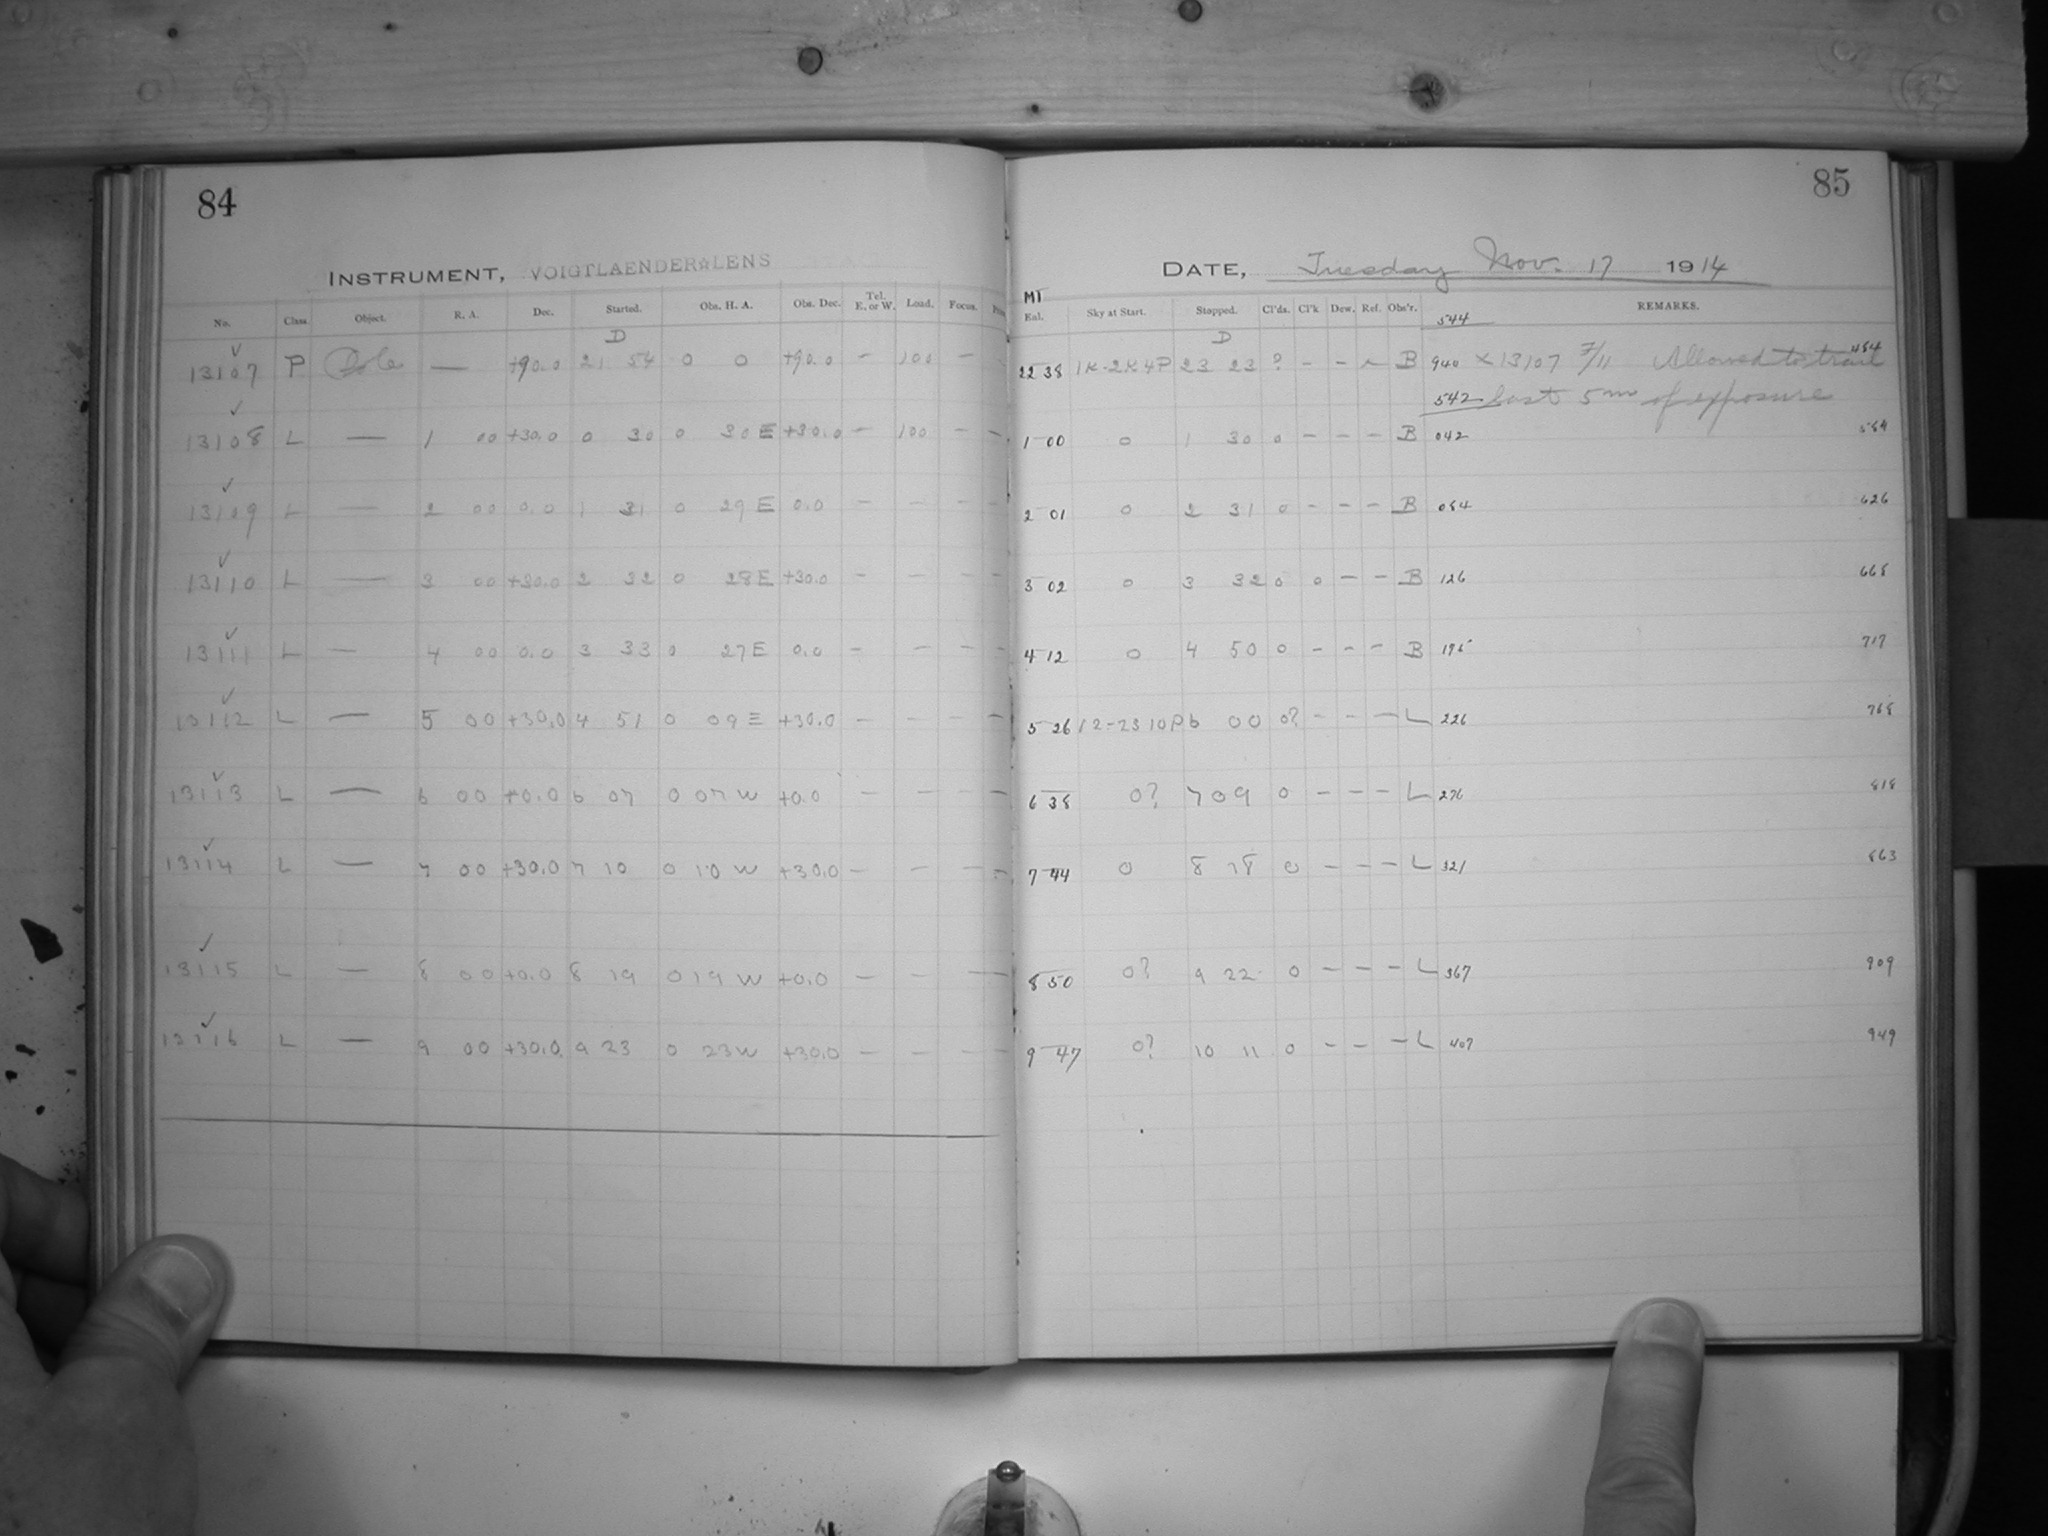 84
INSTRUMENT, VOIGTLAENDER☆LENS
No. Class. Object. R. A. Dec. Started. Obs. H. A. Obs. Dec. Tel. E. or W. Load. Focus.
D
13107 P Pole — +90.0 21 54 0 0 +90.0 – 100 –
13108 L — 1 00 +30.0 0 30 0 30 E +30.0 – 100 – –
13109 L — 2 00 0.0 1 31 0 29 E 0.0 – – – –
13110 L — 3 00 +30.0 2 32 0 28 E +30.0 – – – –
13111 L — 4 00 0.0 3 33 0 27 E 0.0 – – – –
13112 L — 5 00 +30.0 4 51 0 09 E +30.0 – – – –
13113 L — 6 00 +0.0 6 07 0 07 W +0.0 – – – –
13114 L — 7 00 +30.0 7 10 0 10 W +30.0 – – – –
13115 L — 8 00 +0.0 8 19 0 19 W +0.0 – – –
13116 L — 9 00 +30.0 9 23 0 23 W +30.0 – – – –
85
DATE, Tuesday Nov. 17 1914
MT
Eal. Sky at Start. Stopped. Cl'ds. Cl'k Dew. Ref. Obs'r. REMARKS.
544
D
22 38 1K-2K4P 23 23 ? – – – B 940 X 13107 7/11 Allowed to trail 484
542 last 5m of exposure
1 00 0 1 30 0 – – – B 042 584
2 01 0 2 31 0 – – – B 084 626
3 02 0 3 32 0 0 – – B 126 668
4 12 0 4 50 0 – – – B 175 717
5 26 12-23 10P 6 00 0? – – – L 226 768
6 38 0? 7 09 0 – – – L 276 818
7 44 0 8 18 0 – – – L 321 863
8 50 0? 9 22 0 – – – L 367 909
9 47 0? 10 11 0 – – – L 407 949